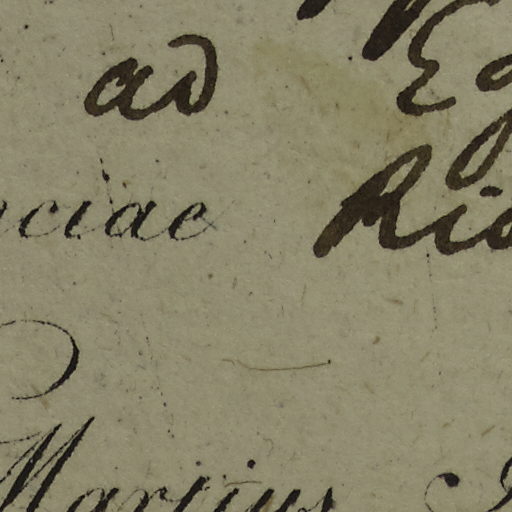 ad Eg
nciae Rio
Martius